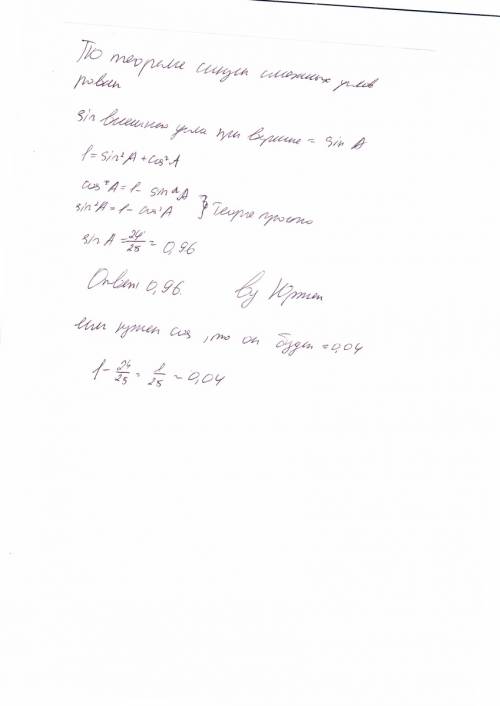 По теореме синусы смежных углов
равен
sin внешнего угла при вершине = sin A
1 = sin² A + cos² A
cos² A = 1 - sin² A
sin² A = 1 - cos² A } Теория просто
sin A = 24/25 = 0,96
Ответ 0,96. by
если нужен cos, то он будет = 0,04
1 - 24/25 = 1/25 = 0,04